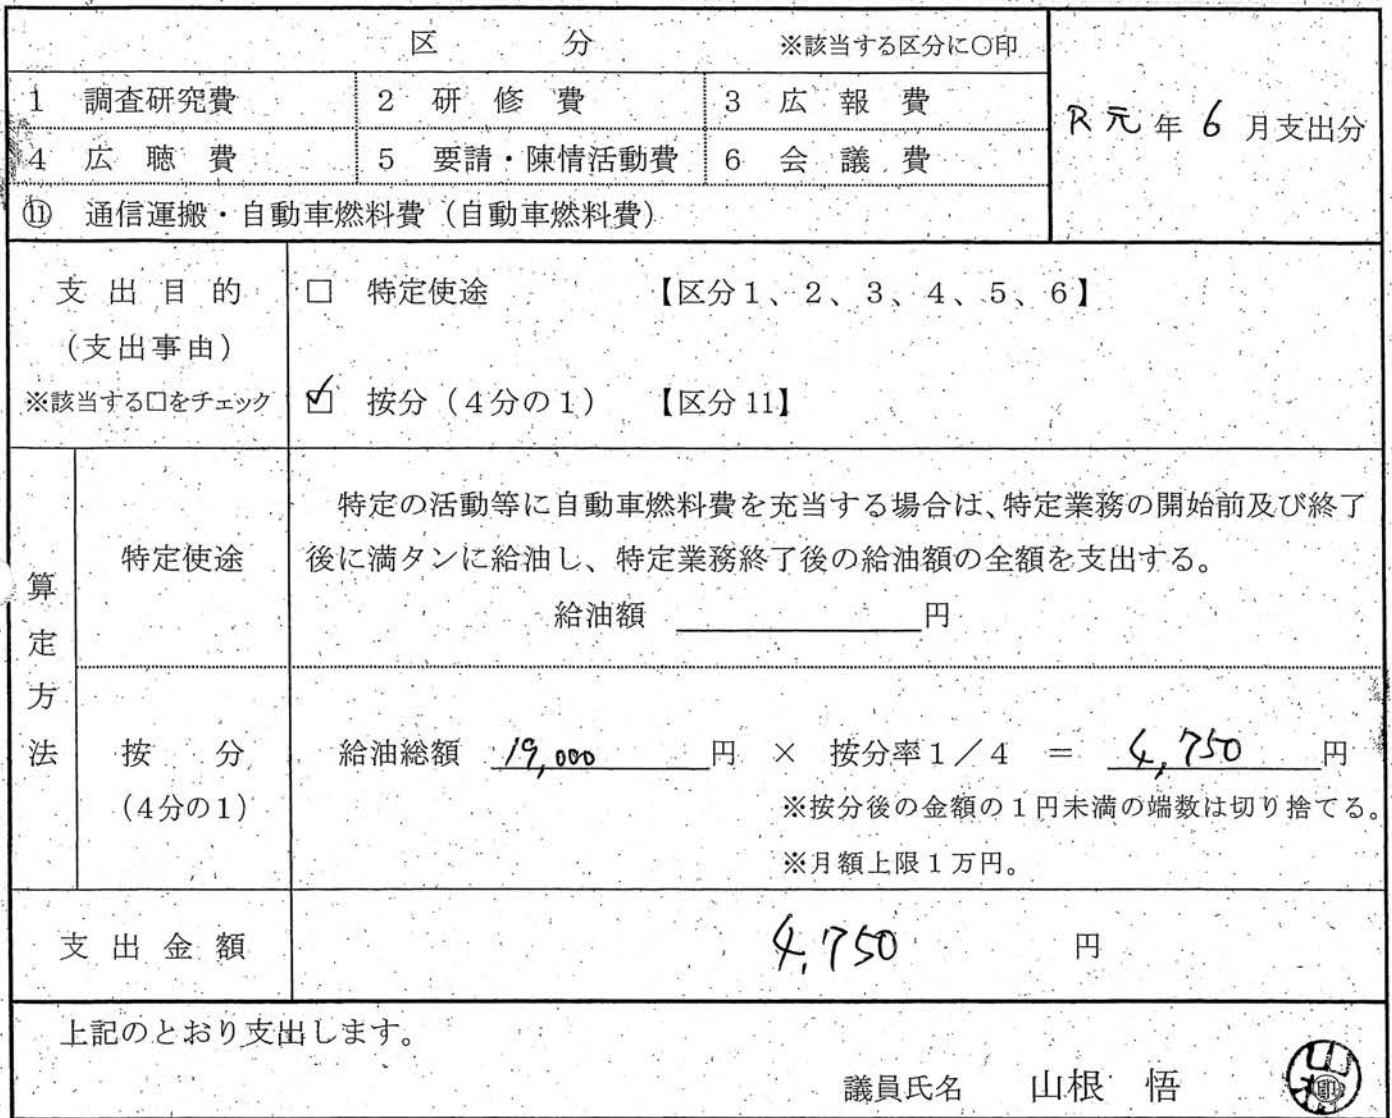 区 分 ※該当する区分に○印
R元年 6 月支出分
1 調査研究費 2 研修費 3 広報費
4 広聴費 5 要請・陳情活動費 6 会議費
⑪ 通信運搬・自動車燃料費（自動車燃料費）
支出目的
（支出事由）
※該当する□をチェック
□ 特定使途 【区分1、2、3、4、5、6】
☑ 按分（4分の1） 【区分11】
算定方法
特定使途
特定の活動等に自動車燃料費を充当する場合は、特定業務の開始前及び終了
後に満タンに給油し、特定業務終了後の給油額の全額を支出する。
給油額 円
按分
（4分の1）
給油総額 19,000 円 × 按分率1／4 ＝ 4,750 円
※按分後の金額の1円未満の端数は切り捨てる。
※月額上限1万円。
支出金額 4,750 円
上記のとおり支出します。
議員氏名 山根 悟